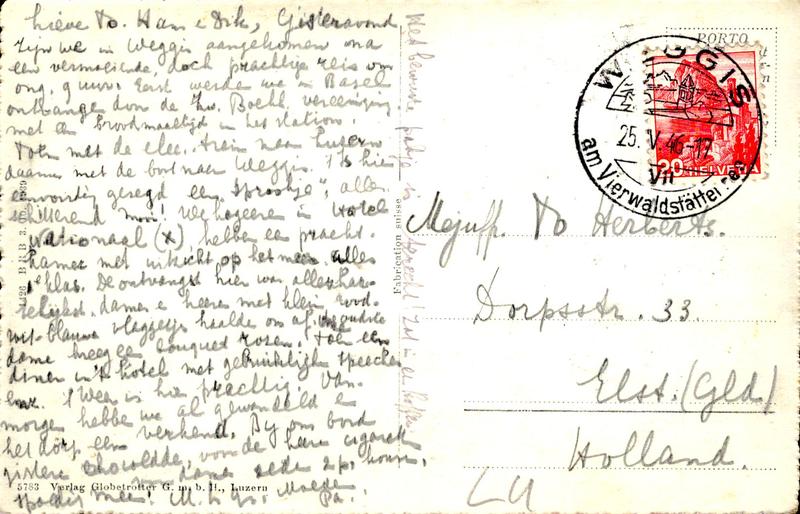 Lieve To. Han & Dik, Gisteravond
zijn we in Weggis aangekomen na
een vermoeiende, doch prachtige reis om
ong. 9 uur. Eerst werden we in Basel
ontvangen door de Zw. Boekh. vereeniging
met een broodmaaltijd in het station.
Toen met de elec. trein naar Luzern
daarna met de boot naar Weggis. 't Is hier
eenvoudig gezegd een "Sprookje", alles
schitterend mooi! We logeeren in Hotel
Nationaal (x), hebben een pracht-
kamer met uitzicht op het meer. Alles
1e klas. De ontvangst hier was allerhar-
telijkst, dames & heeren met klein rood-
wit-blauwe vlaggetjes haalde ons af, de oudste
dame kreeg een bouquet rozen. Toen een
diner in 't hotel met gebruikelijke speeches
enz. 't Weer is hier prachtig. Van-
morgen hebben we al gewandeld &
het dorp een verkend. Bij ons bord
gisteren chocolade, voor de heeren cigaretten
dames
spoedig meer! Moeder
Pa.
Het bewuste pakje is
Zat in de koffer.
1426 BRB 3.
5783 Verlag Globetrotter G. m. b. H., Luzern
Fabrication suisse
PORTO
WEGGIS
25. V. 46-17
VII
am Vierwaldstätter
20 HELVETIA
Mejuffr. To Herberts.
Dorpsstr. 33.
Elst. (Gld)
Holland.